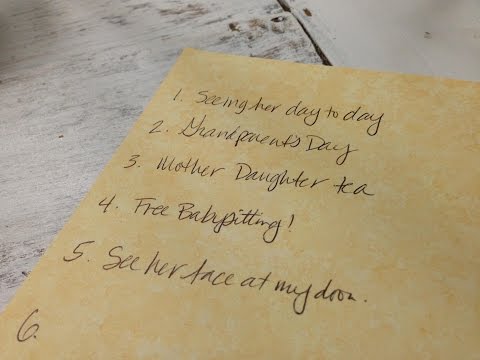 1. Seeing her day to day
2. Grandparent's Day
3. Mother Daughter tea
4. Free Babysitting!
5. See her face at my door.
6.